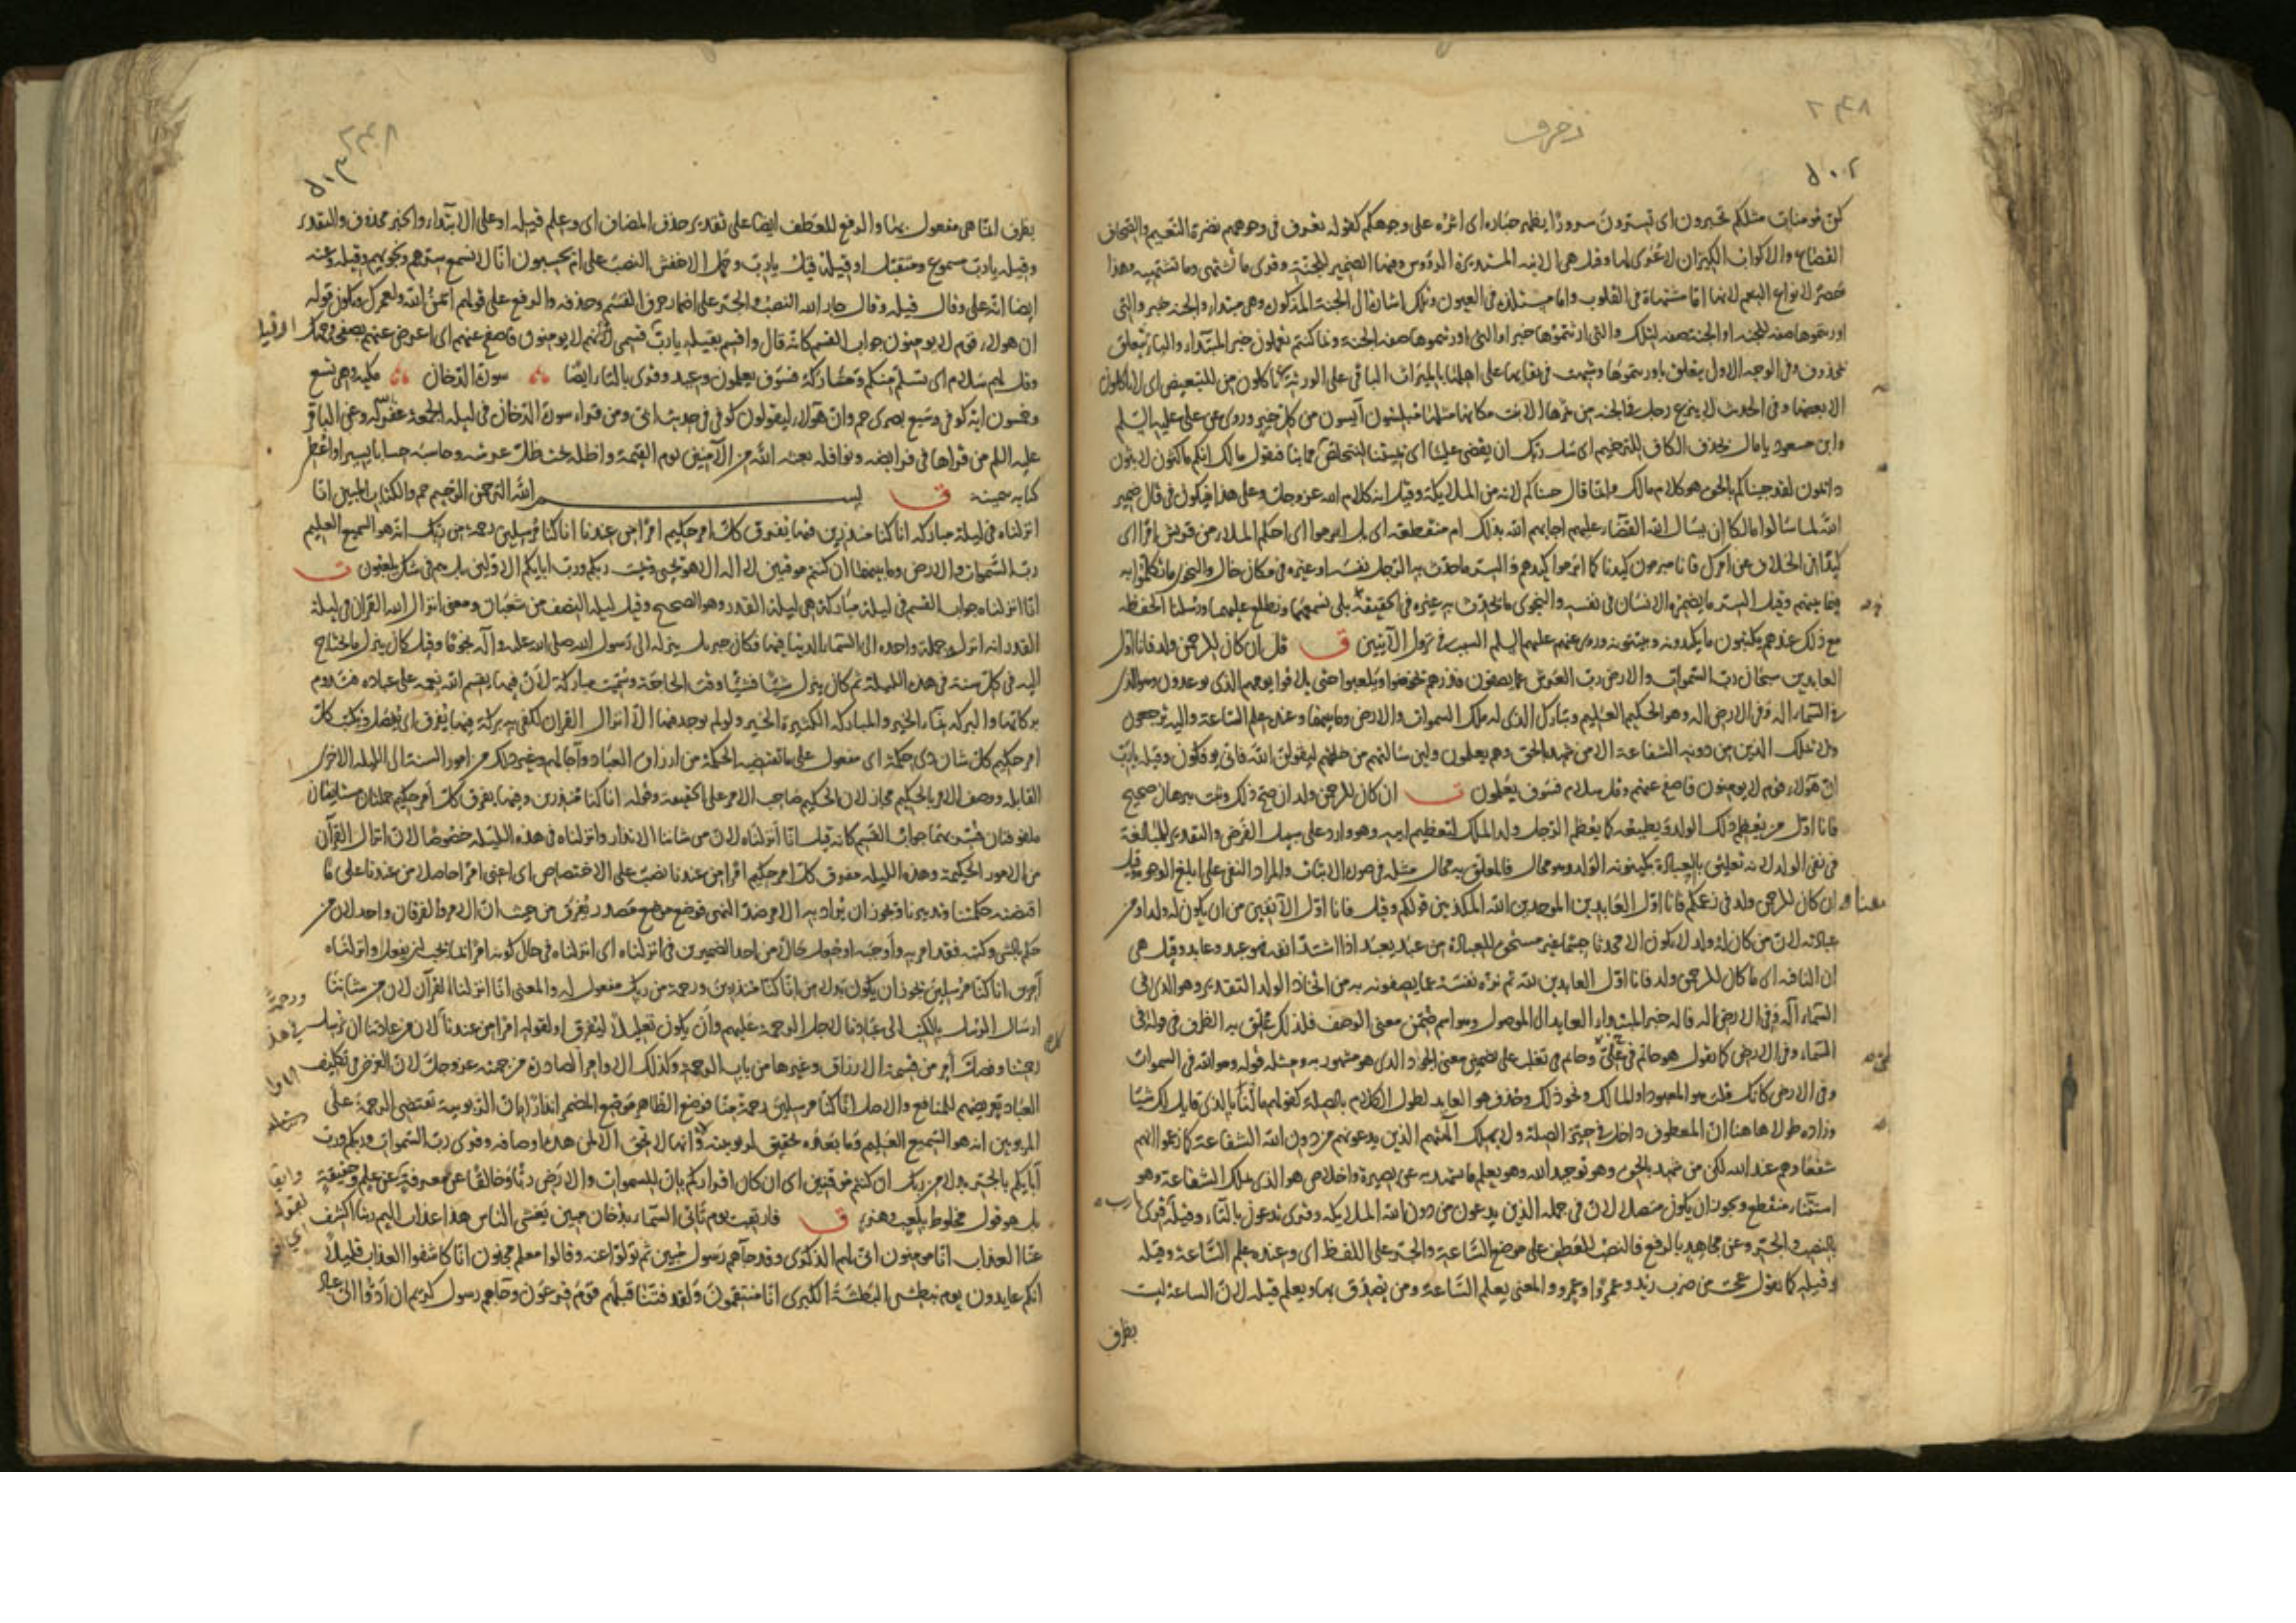 زخرف
كن مؤمنات مثلكم تحبرون اى تسترون سرورًا يظهر حباره اى اثره على وجوهكم كقوله تعرف فى وجوههم نضرة النعيم والصحاف
القصاع والاكواب الكيزان لا عُرى لها وقيل هى الآنية المستديرة الرؤوس وفيها الضمير للجنة وقرى ما تشتهى وما تشتهيه وهذا
حصر لانواع النعم لانها اما مشتهاة فى القلوب واما مستلذة فى العيون وتلك اشارة الى الجنة المذكورة وهى مبتداء والجنة خبر والتى
اورثتموها صفة للجنة او الجنة صفة لتلك والتى اورثتموها خبر او التى اورثتموها صفة الجنة وبما كنتم تعملون خبر المبتداء والباء يتعلق
بمحذوف وفى الوجه الاول يتعلق باورثتموها وشبهت فى بقائها على اهلها بالميراث الباقى على الورثة منها تأكلون من للتبعيض اى لا تأكلون
الا بعضها وفى الحديث لا ينزع رجل فى الجنة من ثمرها الا نبت مكانها مثلها مبلسون آيسون من كل خير وروى عن على عليه السلم
وابن مسعود يا مال بحذف الكاف للترخيم اى سل ربك ان يقضى علينا اى يميتنا لنتخلص مما بنا فيقول مالك انكم ماكثون لابثون
دائمون لقد جئناكم بالحق هو كلام مالك وانما قال جئناكم لانه من الملائكة وقيل انه كلام الله عز وجل وعلى هذا فيكون فى قال ضمير
الله لما سألوا مالكا ان يسأل الله القضاء عليهم اجابهم الله بذلك ام منقطعة اى بل ابرموا اى احكم الملاء من قريش امرا اى
كيدًا فى الخلاف عن امرك فانا مبرمون كيدنا كما ابرموا كيدهم والسر ما حدث به الرجل نفسه او غيره فى مكان خال والنجوى ما تكلموا به
فيما بينهم وقيل السر ما يضمره الانسان فى نفسه والنجوى ما يحدث به غيره فى الخفية بلى نسمعهما ونطلع عليهما ورسلنا الحفظة
مع ذلك عندهم يكتبون ما يكيدونه ويبيتونه وروى عنهم عليهم السلم السبب فى نزول الآيتين ق قل ان كان للرحمن ولد فانا اول
العابدين سبحان رب السموات والارض رب العرش عما يصفون فذرهم يخوضوا ويلعبوا حتى يلاقوا يومهم الذى يوعدون وهو الذى
فى السماء اله وفى الارض اله وهو الحكيم العليم وتبارك الذى له ملك السموات والارض وما بينهما وعنده علم الساعة واليه ترجعون
ولا يملك الذين من دونه الشفاعة الا من شهد بالحق وهم يعلمون ولئن سالتهم من خلقهم ليقولن الله فانى يؤفكون وقيله يا رب
ان هؤلاء قوم لا يؤمنون فاصفح عنهم وقل سلام فسوف يعلمون ت ان كان للرحمن ولد ان صح ذلك وثبت ببرهان صحيح
فانا اول من يعظم ذلك الولد ويطيعه كما يعظم الرجل ولد الملك لتعظيم ابيه وهو وارد على سبيل الفرض والتقدير للمبالغة
فى نفى الولد لانه تعليق بالعبادة بكينونة الولد وهو محال فالمعلق به محال مثله فى صورة الاثبات والمراد النفى على ابلغ الوجوه وقيل
معناه ان كان للرحمن ولد فى زعمكم فانا اول العابدين الموحدين الله المكذبين قولكم وقيل فانا اول الآنفين من ان يكون له ولد او من
عبادته لان من كان له ولد لا يكون الا محدثا جسما غير مستحق للعبادة من عبد يعبد اذا اشتد انفه فهو عبد وعابد وقيل هى
ان النافية اى ما كان للرحمن ولد فانا اول العابدين لله ثم نزه نفسه عما يصفونه به من اتخاذ الولد التقدير وهو الذى فى
السماء اله وفى الارض اله فاله خبر المبتداء العايد الى الموصول وهو اسم ضمن معنى الوصف فلذلك علق به الظرف فى قوله فى
السماء وفى الارض كما تقول هو حاتم فى طىّ وحاتم فى تغلب على تضمين معنى الجواد الذى هو مشهور به ومثله قوله وهو الله فى السموات
وفى الارض كانك قلت هو المعبود او المالك ونحو ذلك وحذف هو العايد لطول الكلام بالصلة كقولهم ما انا بالذى قايل لك شيًا
وزاده طولا هاهنا ان المعطوف داخل فى حيز الصلة ولا يملك آلهتهم الذين يدعونهم من دون الله الشفاعة كما زعموا انهم
شفعاؤهم عند الله لكن من شهد بالحق وهو توحيد الله وهو يعلم ما شهد به عن بصيرة واخلاص هو الذى يملك الشفاعة وهو
استثناء منقطع ويجوز ان يكون متصلا لان فى جملة الذين يدعون من دون الله الملائكة وقرى تدعون بالتاء وقيله قرى
بالنصب والجر وعن مجاهد بالرفع فالنصب للعطف على موضع الساعة والجر على اللفظ اى وعنده علم الساعة وقيله
وقيله كما تقول عجبت من ضرب زيد وعمرًا وعمرو والمعنى يعلم الساعة ومن يصدق بها ويعلم قيله لان الساعة ليست
بظرف
بظرف انما هى مفعول بها والرفع للعطف ايضا على تقدير حذف المضاف اى وعلم قيله او على الابتداء والخبر محذوف والتقدير
وقيله يا رب مسموع ومتقبل او قيله قيل يا رب وحمل الاخفش النصب على ام يحسبون انا لا نسمع سرهم ونجويهم وقيله وعنه
ايضا انه على وقال قيله وقال جار الله النصب والجر على اضمار حرف القسم وحذفه والرفع على قولهم ايمن الله ولعمرك ويكون قوله
ان هولاء قوم لا يؤمنون جواب القسم كانه قال واقسم بقيله يا رب قسمى انهم لا يؤمنون فاصفح عنهم اى اعرض عنهم بصفح وجهك
وقل لهم سلام اى تسلم منكم ومتاركة فسوف يعلمون وعيد وقرى بالتاء ايضًا سورة الدخان مكيه وهى تسع
وخمسون اية كوفى وسبع بصرى حم وان هؤلاء ليقولون كوفى فى حديث ابى ومن قراء سورة الدخان فى ليلة الجمعة غفر له وعن الباقر
عليه السلم من قراها فى فرايضه ونوافله بعثه الله من الآمنين يوم القيمة واظله تحت ظل عرشه وحاسبه حسابا يسيرا واعطى
كتابه بيمينه ق بسم الله الرحمن الرحيم حم والكتاب المبين انا
انزلناه فى ليلة مباركة انا كنا منذرين فيها يفرق كل امر حكيم امرًا من عندنا انا كنا مرسلين رحمة من ربك انه هو السميع العليم
رب السموات والارض وما بينهما ان كنتم موقنين لا اله الا هو يحيى ويميت ربكم ورب ابايكم الاولين بل هم فى شك يلعبون ت
انا انزلناه جواب القسم فى ليلة مباركة هى ليلة القدر وهو الصحيح وقيل ليلة النصف من شعبان ومعنى انزال الله القران فى ليلة
القدر انه انزل جملة واحدة الى السماء الدنيا فيها فكان جبريل ينزله الى رسول الله صلى الله عليه وآله نجومًا وقيل كان ينزل ما يحتاج
اليه فى كل سنة فى هذه الليلة ثم كان ينزل شيئًا فشيئًا وقت الحاجة وسميت مباركة لان فيها يقسم الله نعمه على عباده فتدوم
بركاتها والبركة نماء الخير والمباركة الكثيرة الخير ولو لم يوجد فيها الا انزال القران لكفى به بركة فيها يفرق اى يفصل ويكتب كل
امر حكيم كل شان ذى حكمة اى مفعول على ما تقتضيه الحكمة من ارزاق العباد وآجالهم وغير ذلك من امور السنة الى الليلة الاخرى
القابلة ووصف الامر بالحكيم مجاز لان الحكيم صاحب الامر على الحقيقة وقوله انا كنا منذرين وفيها يفرق كل امر حكيم جملتان مستانفتان
ملفوفتان فسر بهما جواب القسم كانه قيل انا انزلناه لان من شاننا الانذار وانزلناه فى هذه الليلة خصوصًا لان انزال القرآن
من الامور الحكيمة وهذه الليلة مفرق كل امر حكيم امرا من عندنا نصب على الاختصاص اى اعنى امرًا حاصلا من عندنا على ما
اقتضته حكمتنا وتدبيرنا ويجوز ان يراد به الامر ضد النهى فوضع موضع مصدر يفرق من حيث ان الامر والفرقان واحد لان من
حكم بالشى وكتبه فقد امر به واوجبه او يكون حالًا من احد الضميرين فى انزلناه اى انزلناه فى حال كونه امرًا بما يجب ان يفعل او انزلناه
آمرين انا كنا مرسلين يجوز ان يكون بدلا من انا كنا منذرين ورحمة من ربك مفعول له والمعنى انا انزلنا القرآن لان من شاننا
ارسال الرسل بالكتب الى عبادنا لاجل الرحمة عليهم وأن يكون تعليلًا ليفرق او لقوله امرًا من عندنا لان من عادتنا ان نرسل
رحمتنا وفصل كل امر من قسمة الارزاق وغيرها من باب الرحمة وكذلك الاوامر الصادرة من جهته عز وجل لان الغرض فى تكليف
العباد تعريضهم للمنافع والاصل انا كنا مرسلين رحمة منا فوضع الظاهر موضع المضمر انذارًا بان الربوبية تقتضى الرحمة على
المربوبين انه هو السميع العليم وما بعده تحقيق لربوبيته وانها لا تحق الا لمن هذه اوصافه وقرى رب السموات وربكم ورب
آبايكم بالجر بدلا من ربك ان كنتم موقنين اى ان كان اقراركم بان للسموات والارض ربًا وخالقًا عن معرفة وعن علم وحقيقة
بل هو قول مخلوط بلعب وهزو ق فارتقب يوم تاتى السماء بدخان مبين يغشى الناس هذا عذاب اليم ربنا اكشف
عنا العذاب انا مومنون انى لهم الذكرى وقد جآءهم رسول مبين ثم تولوا عنه وقالوا معلم مجنون انا كاشفوا العذاب قليلًا
انكم عايدون يوم نبطش البطشة الكبرى انا منتقمون ولقد فتنا قبلهم قوم فرعون وجاءهم رسول كريم ان ادوا الى عباد